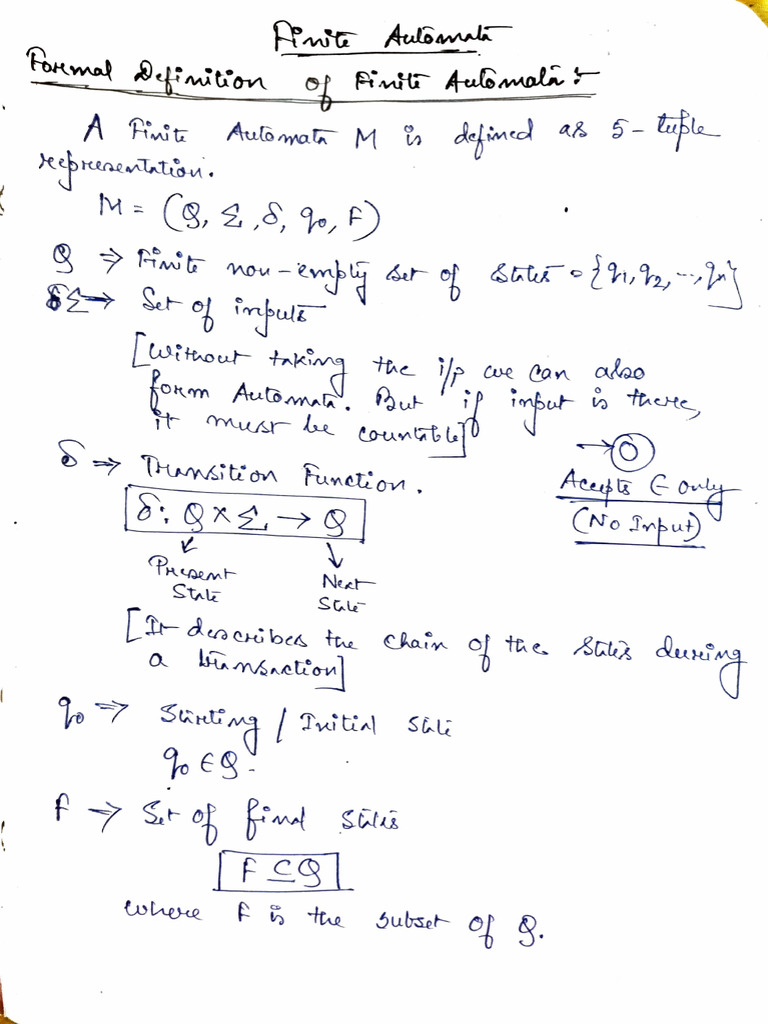 Finite Automata
Formal Definition of Finite Automata :-
A Finite Automata M is defined as 5-tuple
representation.
M = (Q, Σ, δ, q0, F)
Q ⇒ Finite non-empty set of states = {q1, q2, ..., qn}
Σ → Set of inputs
[Without taking the i/p we can also
form Automata. But if input is there,
it must be countable]
Accepts ∈ only
(No Input)
δ ⇒ Transition Function.
δ: Q × Σ → Q
Present State
Next State
[It describes the chain of the states during
a transaction]
q0 ⇒ Starting / Initial state
q0 ∈ Q.
F ⇒ Set of final states
F ⊆ Q
where F is the subset of Q.